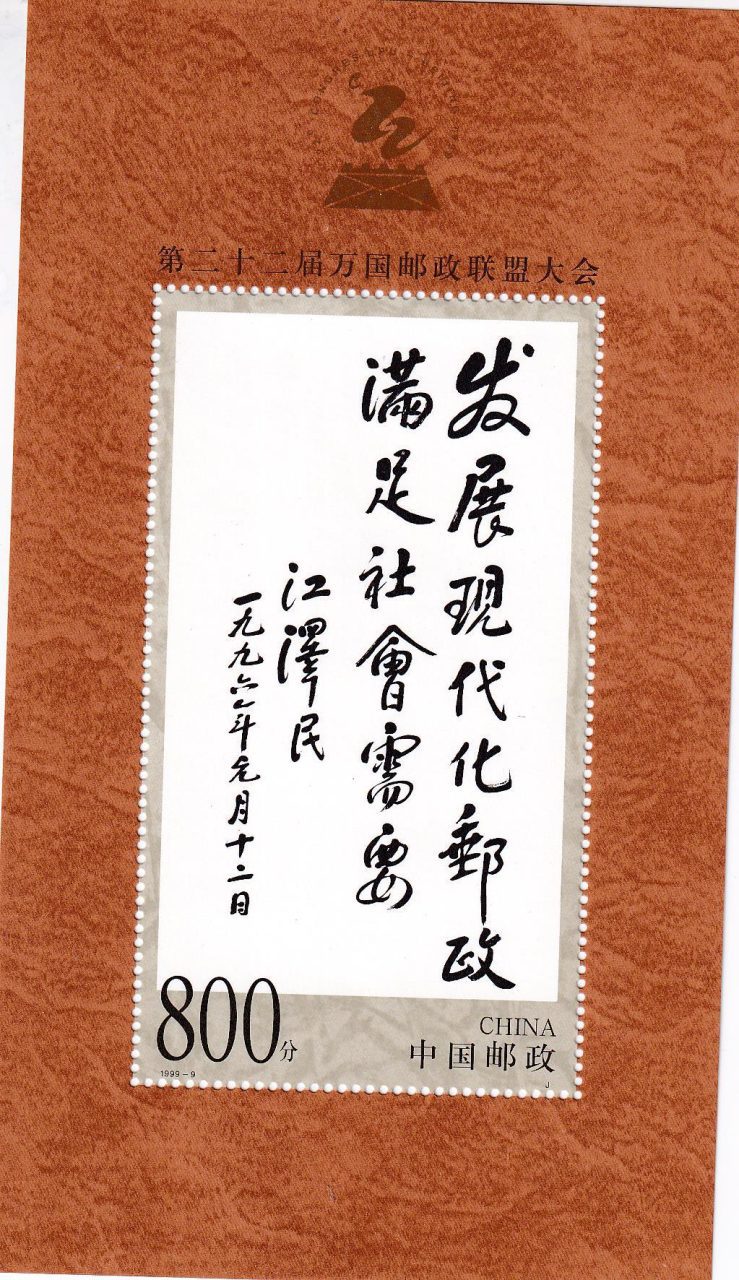 CONGRESS UPU
第二十二届万国邮政联盟大会
发展現代化郵政
滿足社會需要
江澤民
一九九六年元月十二日
800分
CHINA
中国邮政
1999-9
J